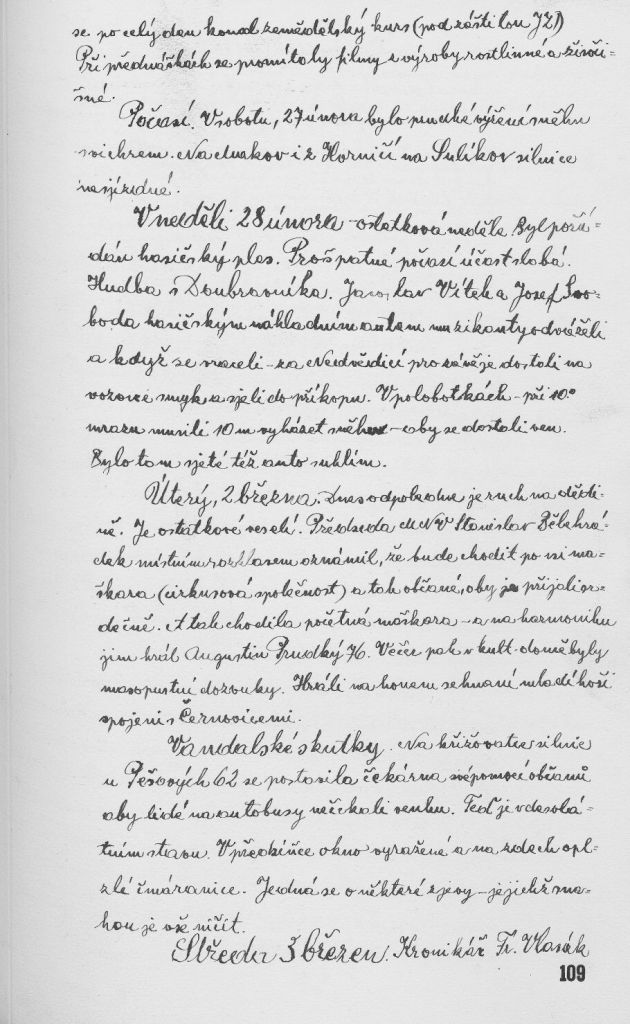 se po celý den konal zemědělský kurs (pod záštitou JZD)
Při přednáškách se promítaly filmy z výroby rostlinné a živoči-
šné.
Počasí. V sobotu, 27 února bylo prudké výření sněhu
s vichrem. Na Lhákov i z Hornič na Sulíkov silnice
nesjízdné.
V neděli 28 února - ostatková neděle byl pořá-
dán hasičský ples. Pro špatné počasí účast slabá.
Hudba s Doubravníka. Jaroslav Vítek a Josef Svo-
boda hasičským nákladním autem muzikanty odváželi
a když se vraceli - za Nedvědicí pro závěje dostali na
vozovce smyk a sjeli do příkopu. V polobotkách - při 10°
mrazu musili 10 m vyházet sněhu - aby se dostali ven.
Bylo tam sjeté též auto s uhlím.
Úterý, 2 března. Dnes odpoledne je ruch na dědi-
ně. Je ostatkové veselí. Předseda MNV Stanislav Bělehrá-
dek místním rozhlasem oznámil, že bude chodit po vsi ma-
škara (cirkusová společnost) a tak občané, aby je přijali sr-
dečně. A tak chodila početná maškara - a na harmoniku
jim hrál Augustin Prudký 76. Večer pak v kult. domě byly
masopustní dozvuky. Hráli na honem sehnaní mladí hoši
spojeni s Černovicemi.
Vandalské skutky. Na křižovatce silnic
u Pešových 62 se postavila čekárna svépomocí občanů
aby lidé na autobusy nečekali venku. Teď je v desolá-
tním stavu. V předsíňce okno vyražené a na zdech opl-
zlé čmáranice. Jedná se o některé zjevy - jejichž sna-
hou je vše ničit.
Středa 3 březen. Kronikář Fr. Vlasák
109